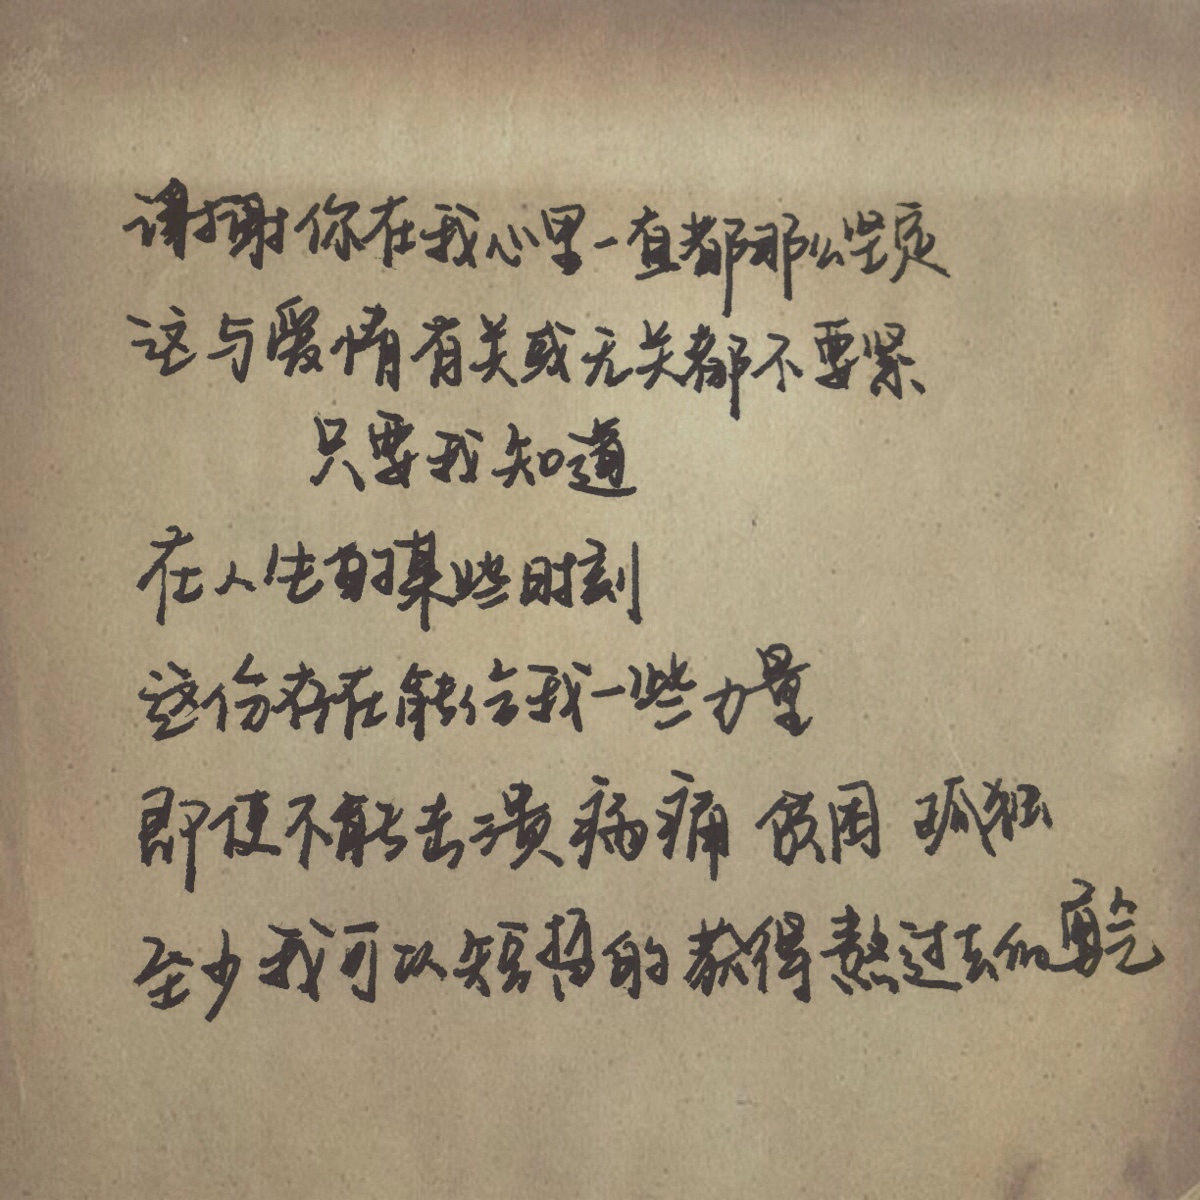 谢谢你在我心里一直都那么坚定
这与爱情有关或无关都不要紧
只要我知道
在人生的某些时刻
这份存在能给我一些力量
即使不能击溃病痛 贫困 孤独
至少我可以短暂的获得熬过去的勇气